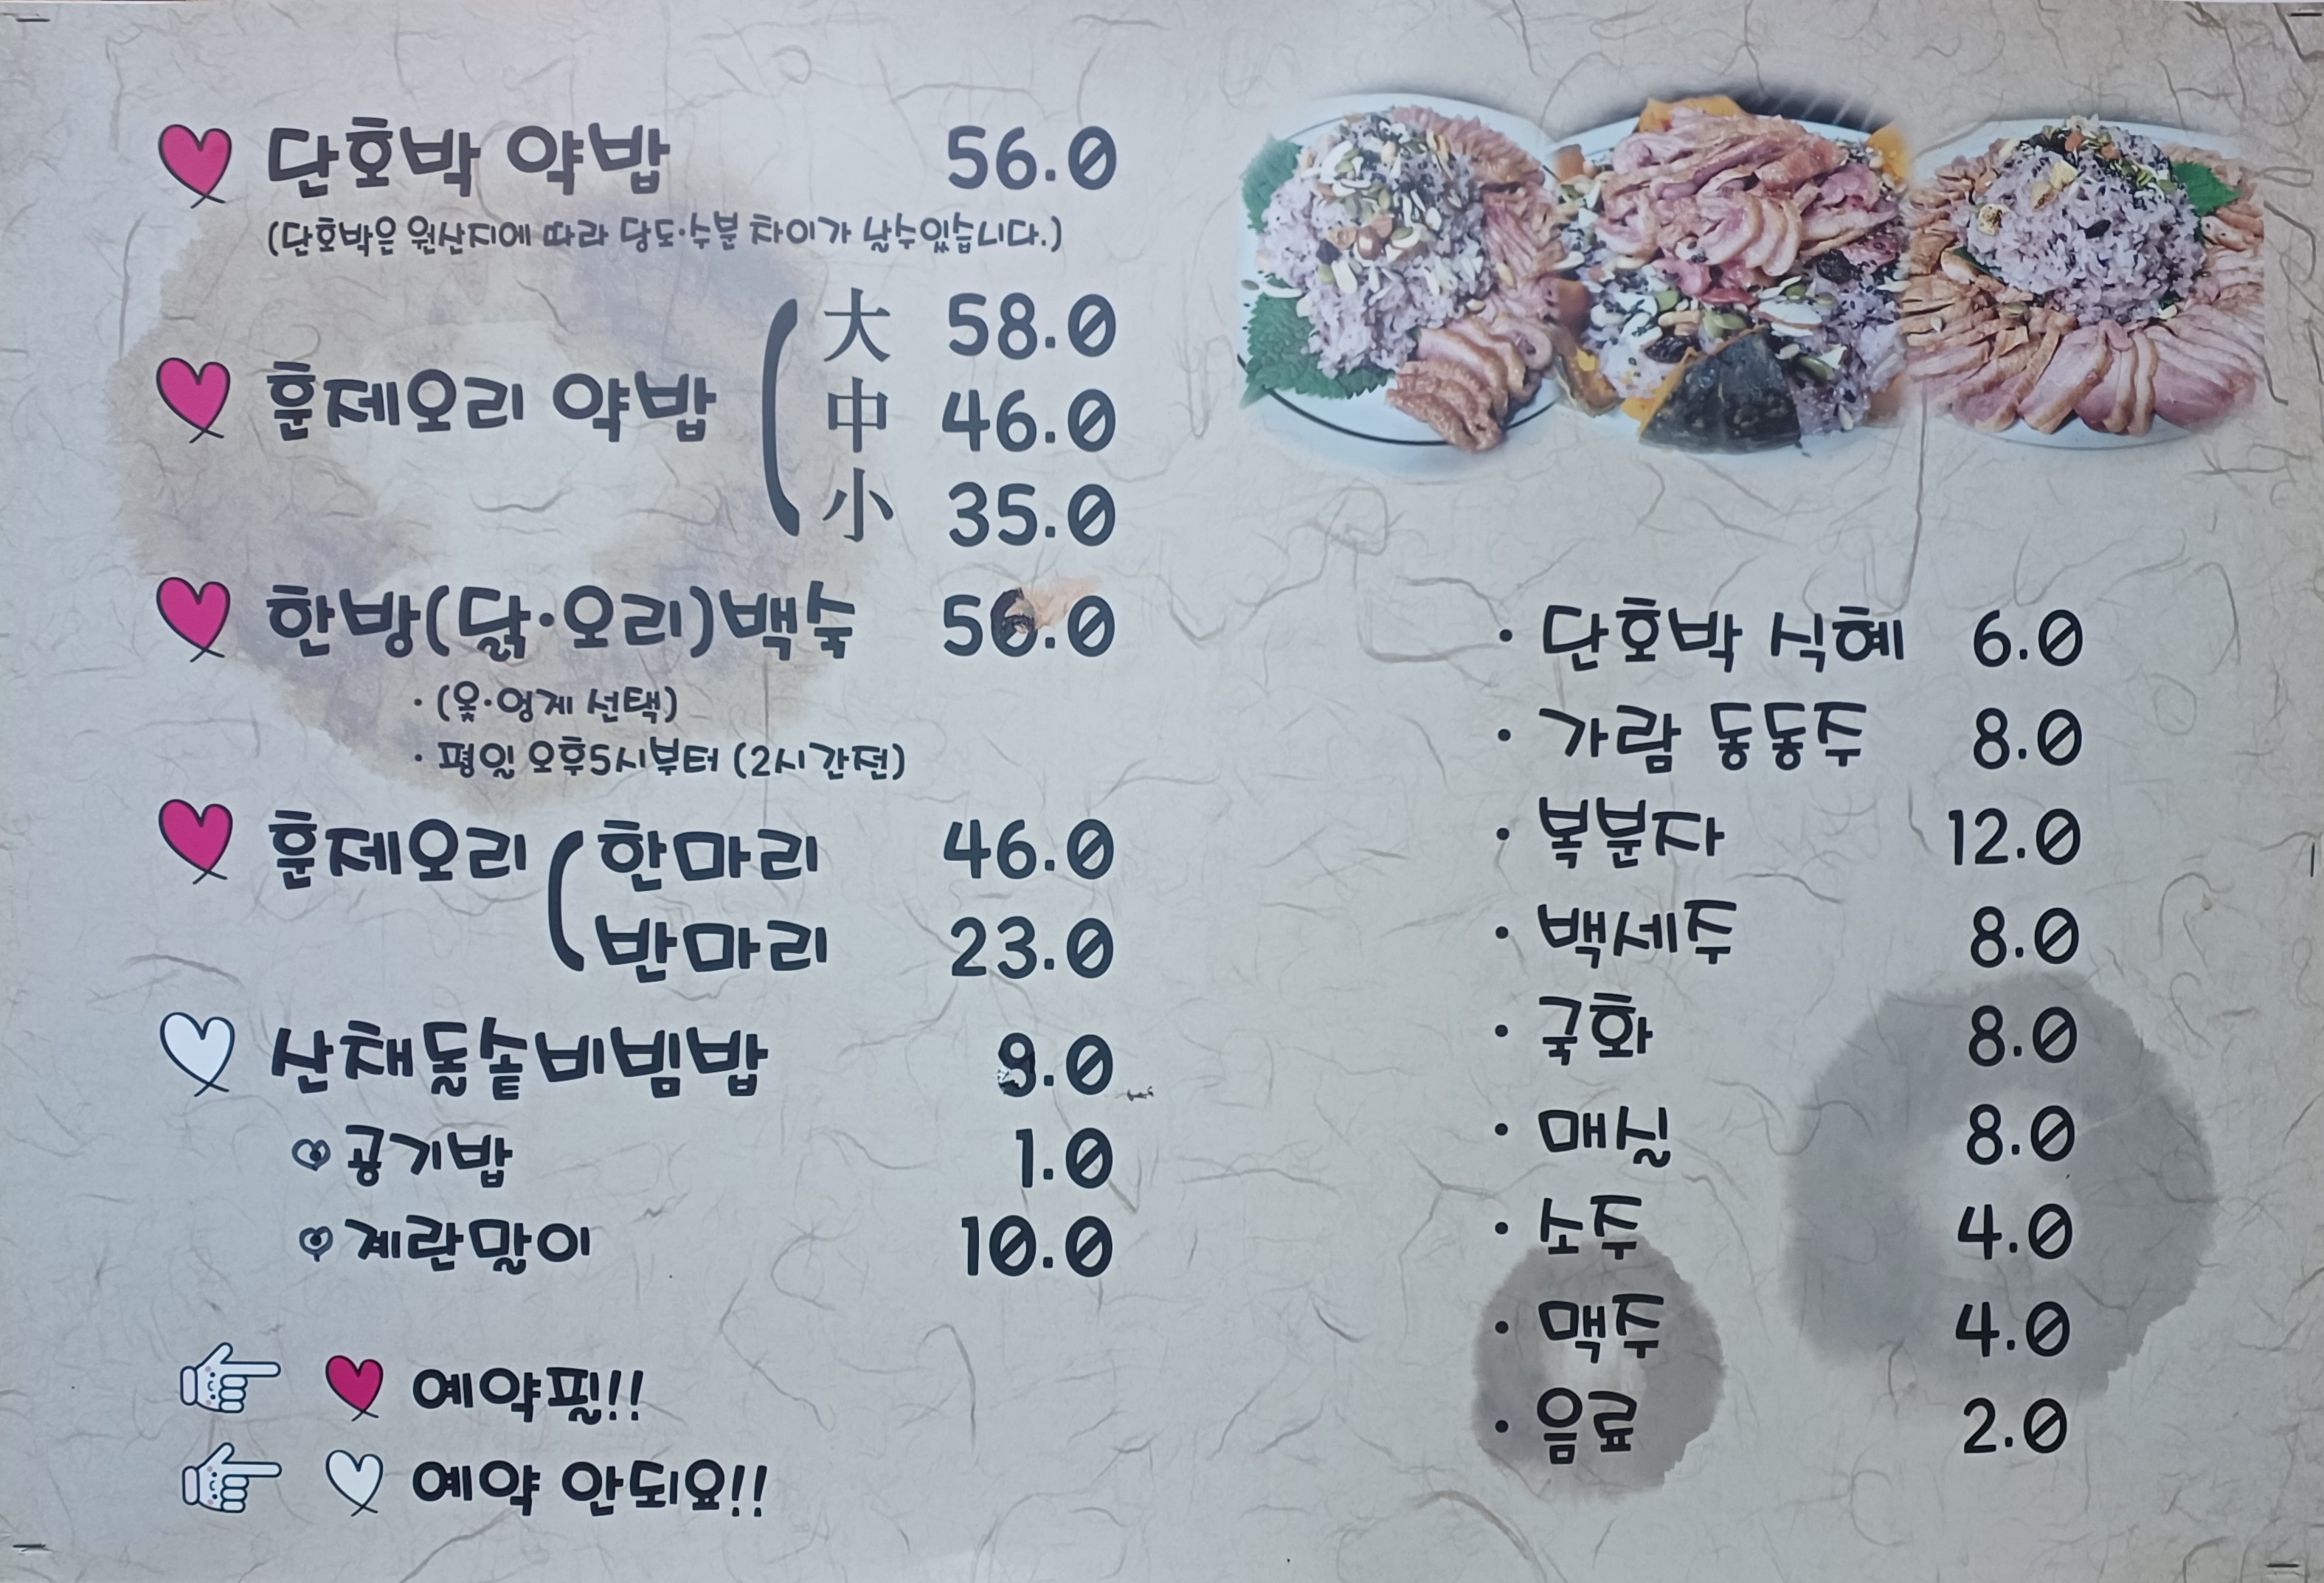 단호박 약밥 56.0
(단호박은 원산지에 따라 당도·수분 차이가 날수있습니다.)
훈제오리 약밥
大 58.0
中 46.0
小 35.0
한방(닭·오리)백숙 56.0
· (옻·엉게 선택)
· 평일 오후5시부터 (2시간전)
훈제오리
한마리 46.0
반마리 23.0
산채돌솥비빔밥 9.0
공기밥 1.0
계란말이 10.0
예약필!!
예약 안되요!!
· 단호박 식혜 6.0
· 가람 동동주 8.0
· 복분자 12.0
· 백세주 8.0
· 국화 8.0
· 매실 8.0
· 소주 4.0
· 맥주 4.0
· 음료 2.0